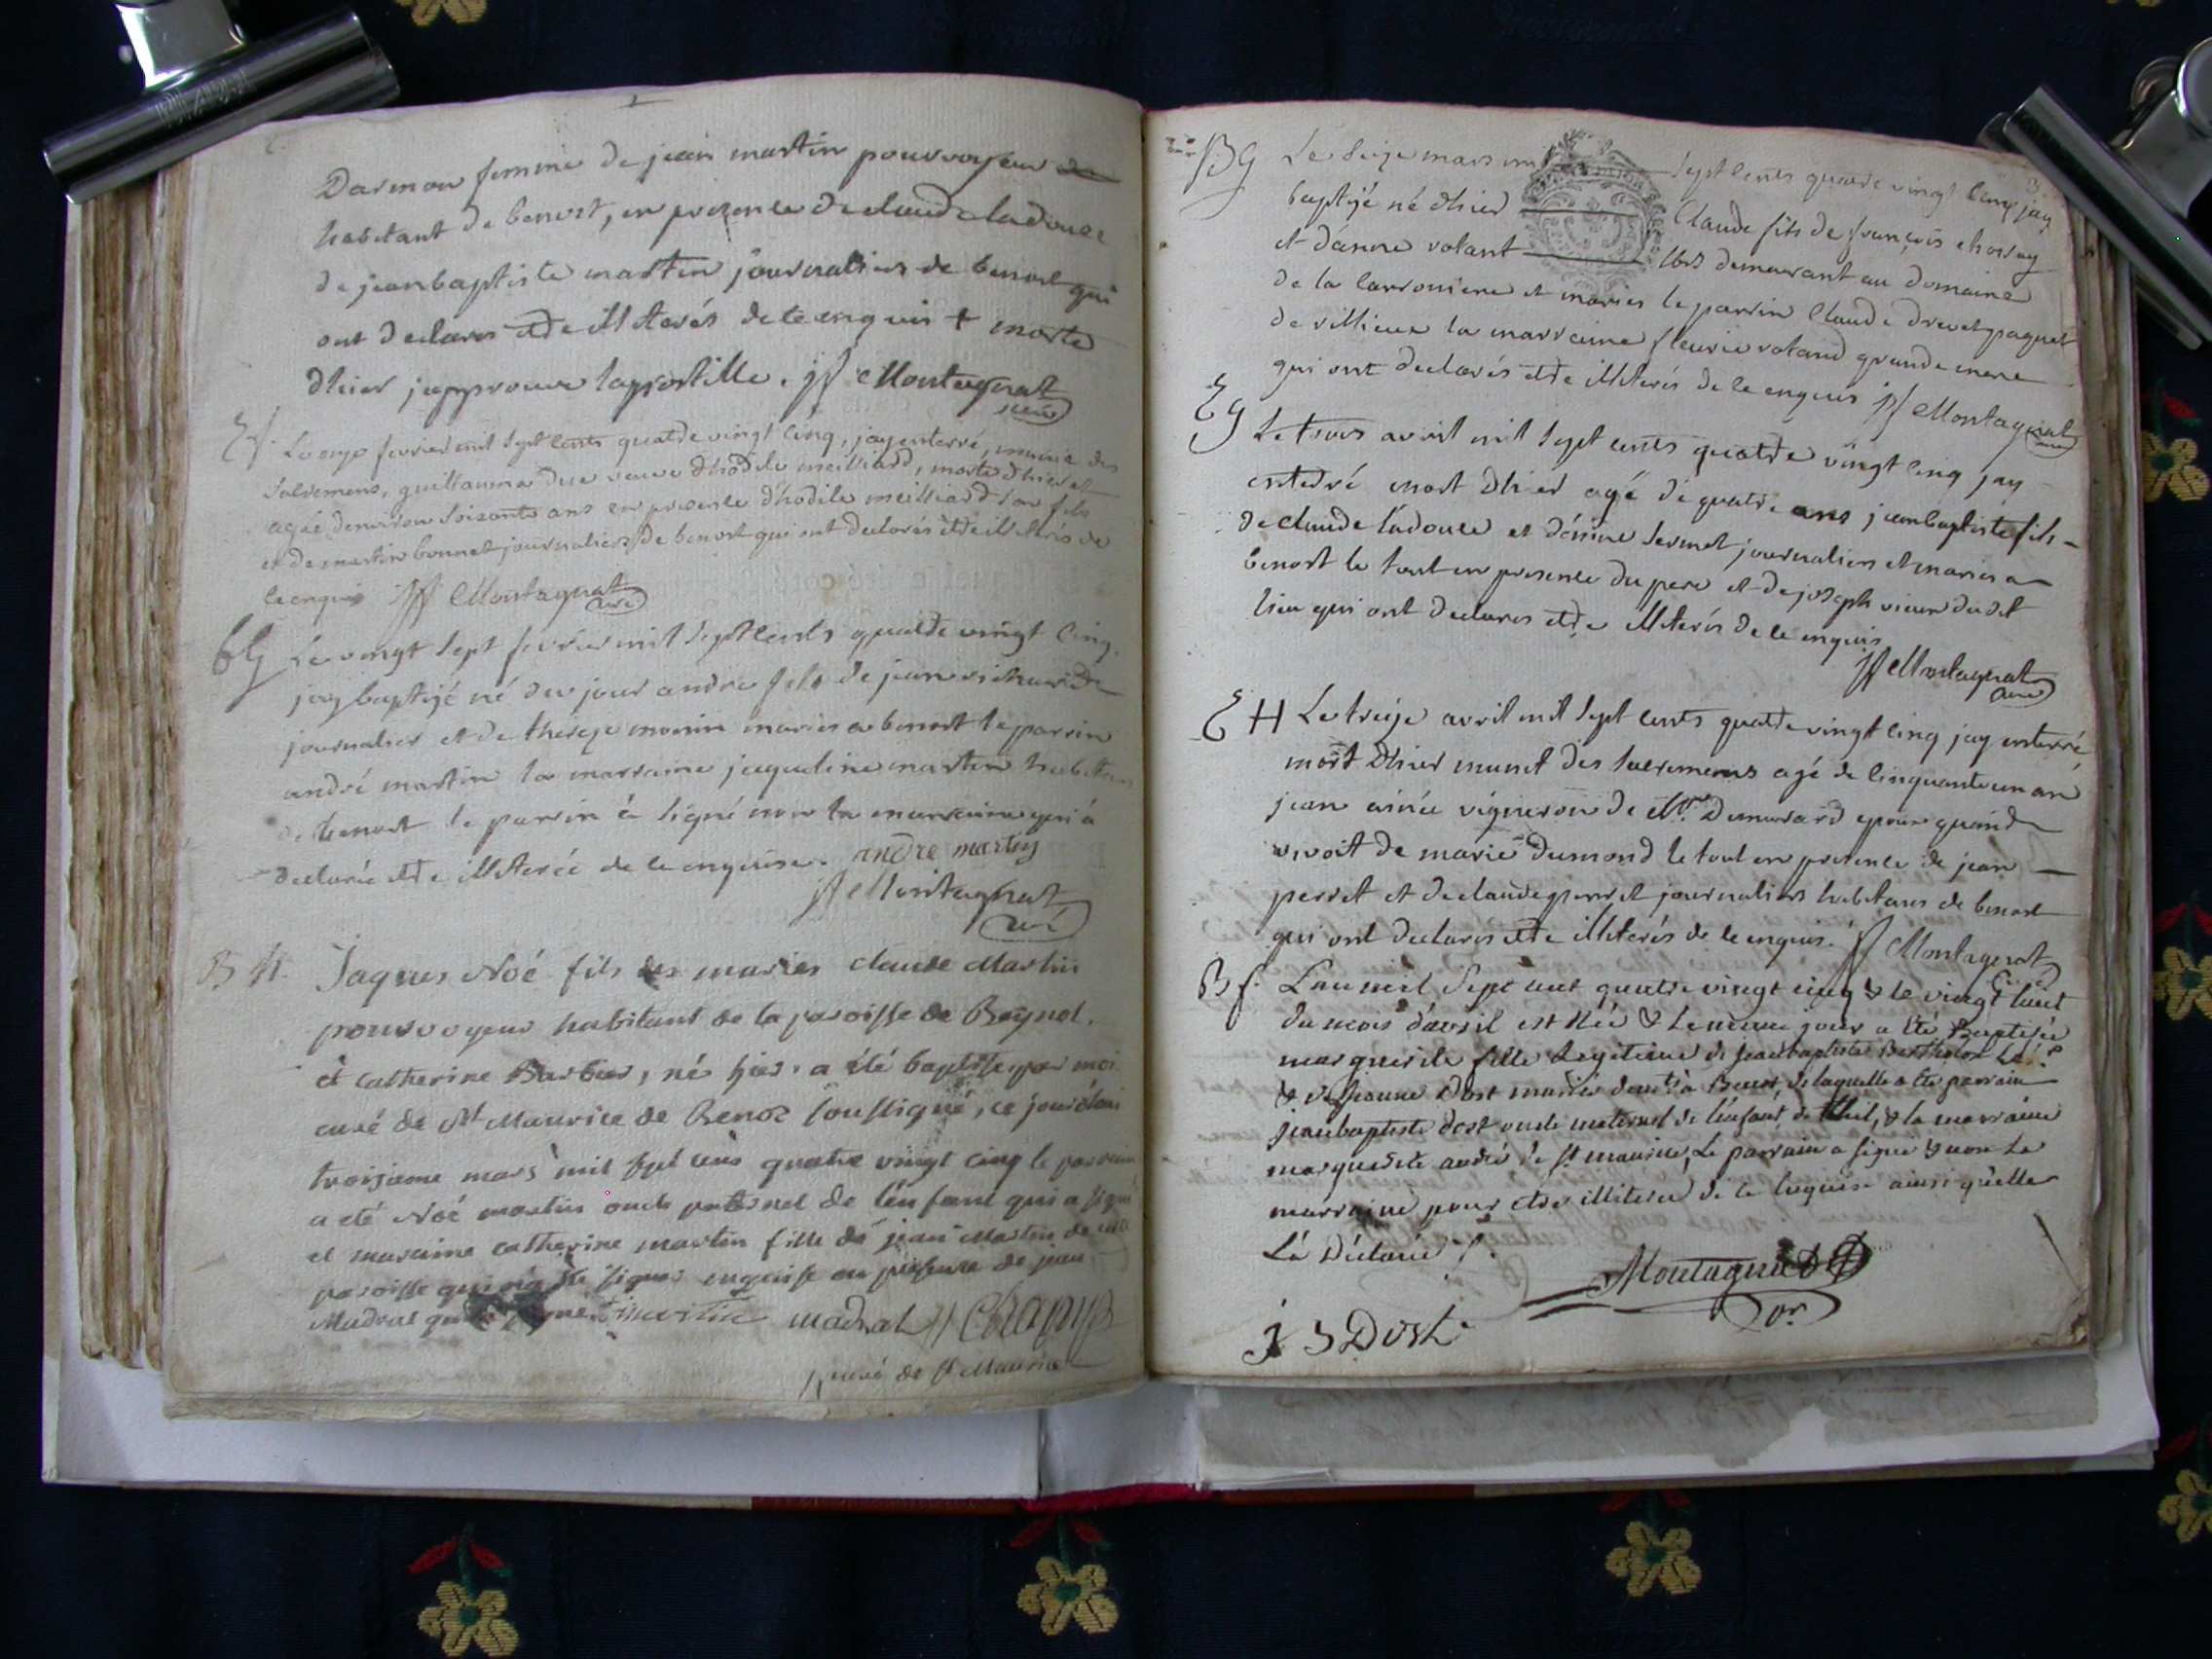 Darmon femme de jean martin pourvoyeur
habitant de benost, en presence de claude ladouce
de jeanbaptiste martin journaliers de benost qui
ont declarés etre illiterés de ce enquis + morte
dhier japprouve lapostille. jf Montagnat
curé
Ef. Le onze fevrier mil sept cents quatre vingt cinq, jay enterré, munie des
sacremens, guillauma due veuve dhodile meilliard, morte dhier et
agée denviron soixante ans en presence dhodile meilliard son fils
et de martin bonnet journaliers de benost qui ont declarés etre illiterés de
ce enquis jf Montagnat
curé
bG Le vingt sept fevrier mil sept cents quatre vingt cinq,
jay baptizé né du jour andré fils de jean richard
journalier et de thereze monin mariés a benost le parrin
andré martin la marraine jaqueline martin
de benost le parrin à signé non la marraine qui à
declarée etre illiterée de ce enquise. andre martin
jf Montagnat
curé
B H. Jaques Noé fils des mariés claude Martin
pourvoyeur habitant de la paroisse de Beynot.
et catherine Barbier, né hier, a été baptisé par moi
curé de St Maurice de Benoz soussigné, ce jourdhui
troizieme mars mil sept cens quatre vingt cinq le parrain
a eté Noé martin oncle paternel de l'enfant qui a signé
et maraine catherine martin fille de jean Martin de cette
paroisse qui signer enquise en presence de jean
Madrat qui martin madrat // Chapuy
curé de St Maurice
BG Le seize mars mil sept cents quatre vingt cinq jay
baptizé né dhier Claude fils de françois chossy
et d'anne rolant demeurant au domaine
de la carroniere et mariés le parrin Claude drevet paquet
de villieux la marraine fleurie roland grande mere
qui ont declarés etre illiterés de ce enquis jf Montagnat
curé
EG Le trois avril mil sept cents quatre vingt cinq jay
enterré mort dhier agé de quatre ans jeanbaptiste fils
de claude ladouce et d'enine sermet journaliers et mariés a
benost le tout en presence du pere et de joseph vieux dudit
lieu qui ont declarés etre illiterés de ce enquis
jf Montagnat
curé
E H Le treize avril mil sept cents quatre vingt cinq jay enterré
mort dhier munit des sacremens agé de cinquante un an
jean ainée vigneron de Mr. Dumusard epoux quand
vivoit de marie dumond le tout en presence de jean
perret et de claude perret journaliers habitans de benost
qui ont declarés etre illiterés de ce enquis. jf Montagnat
curé
B f. L'an mil sept cent quatre vingt cinq & le vingt huit
du mois d'avril est née & le meme jour a été Baptisée
marguerite fille Legitime de jeanbaptiste Bertholon
& de jeanne Dost mariés a Benost, de laquelle a été parrain
jeanbaptiste dost oncle maternel de l'enfant, de thil, & la marraine
marguerite andré de st. maurice, Le parrain a signé & non La
marraine pour etre illiterée de ce enquise ainsi qu'elle
L'a Déclaré /.
Montagnat
J B Dost